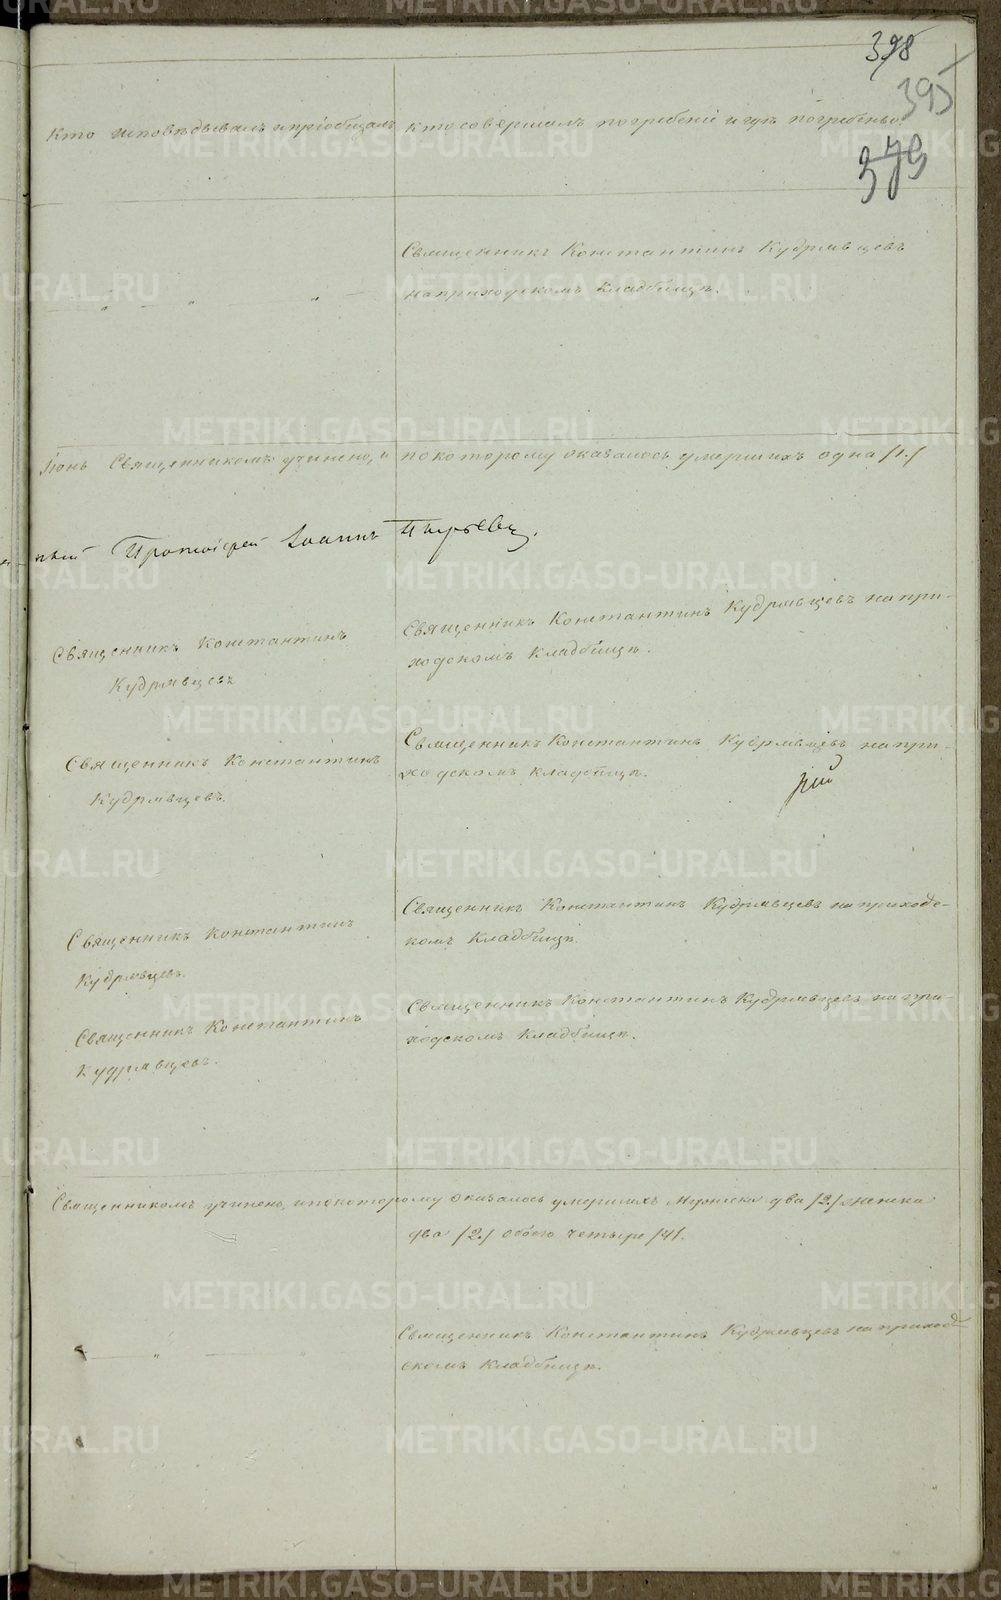 398
395
379
Кто исповѣдывалъ и пріобщалъ
кто совершалъ погребеніе и гдѣ погребены
Священникъ Константинъ Кудрявцевъ
на приходскомъ кладбищѣ.
Іюнь Священникомъ учинено, и по которому оказалось умершихъ одна /1./
Протоіерей Іоаннъ
Священникъ Константинъ
Кудрявцевъ
Священникъ Константинъ Кудрявцевъ на при-
ходскомъ кладбищѣ.
Священникъ Константинъ
Кудрявцевъ.
Священникъ Константинъ Кудрявцевъ на при-
ходскомъ кладбищѣ.
Священникъ Константинъ
Кудрявцевъ.
Священникъ Константинъ Кудрявцевъ на приходс-
комъ кладбищѣ.
Священникъ Константинъ
Кудрявцевъ.
Священникъ Константинъ Кудрявцевъ на при-
ходскомъ кладбищѣ.
Священникомъ учинено, и по которому оказалось умершихъ мужеска два /2./ женска
два /2./ обоего четыре /4/.
Священникъ Константинъ Кудрявцевъ на приход-
скомъ кладбищѣ.
METRIKI.GASO-URAL.RU